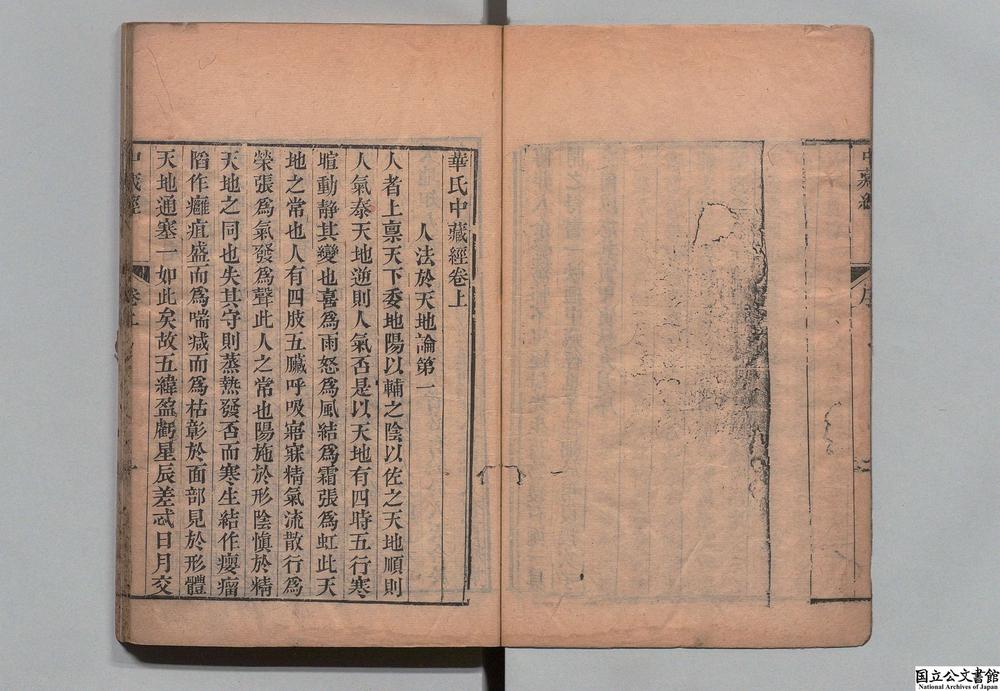 華氏中藏經卷上
人法於天地論第一
人者上禀天下委地陽以輔之陰以佐之天地順則
人氣泰天地逆則人氣否是以天地有四時五行寒
暄動靜其變也喜爲雨怒爲風結爲霜張爲虹此天
地之常也人有四肢五臟呼吸寤寐精氣流散行爲
榮張爲氣發爲聲此人之常也陽施於形陰慎於精
天地之同也失其守則蒸熱發否而寒生結作癭瘤
陷作癰疽盛而爲喘減而爲枯彰於面部見於形體
天地通塞一如此矣故五緯盈虧星辰差忒日月交
中藏經
卷上
国立公文書館
National Archives of Japan